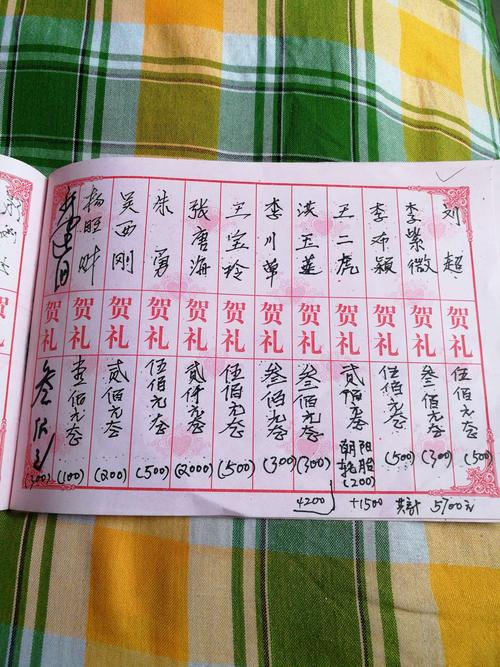 刘超
贺礼
伍佰元整
(500)
李紫微
贺礼
叁佰元整
(300)
李颖
贺礼
伍佰元整
(500)
王二虎
贺礼
贰佰元整
朝阳
轮胎
(200)
洪玉莲
贺礼
叁佰元整
(300)
李川
贺礼
叁佰元整
(300)
王宝玲
贺礼
伍佰元整
(500)
张唐海
贺礼
贰仟元整
(2000)
朱勇
贺礼
伍佰元整
(500)
吴西刚
贺礼
贰佰元整
(200)
杨旺
贺礼
壹佰元整
(100)
贺礼
叁佰元
(300)
4200 +1500 共计 5700元